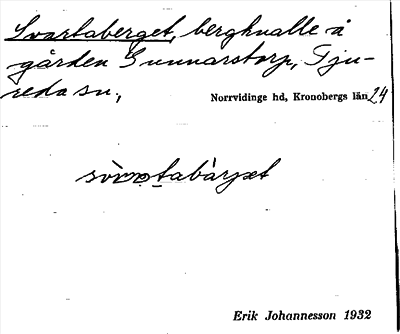 Svartaberget, bergknalle å
gården Gunnarstorp, Tju-
reda sn.,
Norrvidinge hd, Kronobergs län 24
Erik Johannesson 1932